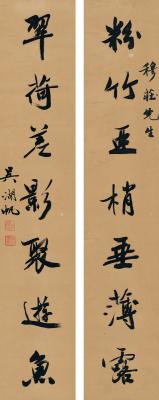 穆莊先生
粉竹亞梢垂薄露
翠荷差影聚遊魚
吳湖帆